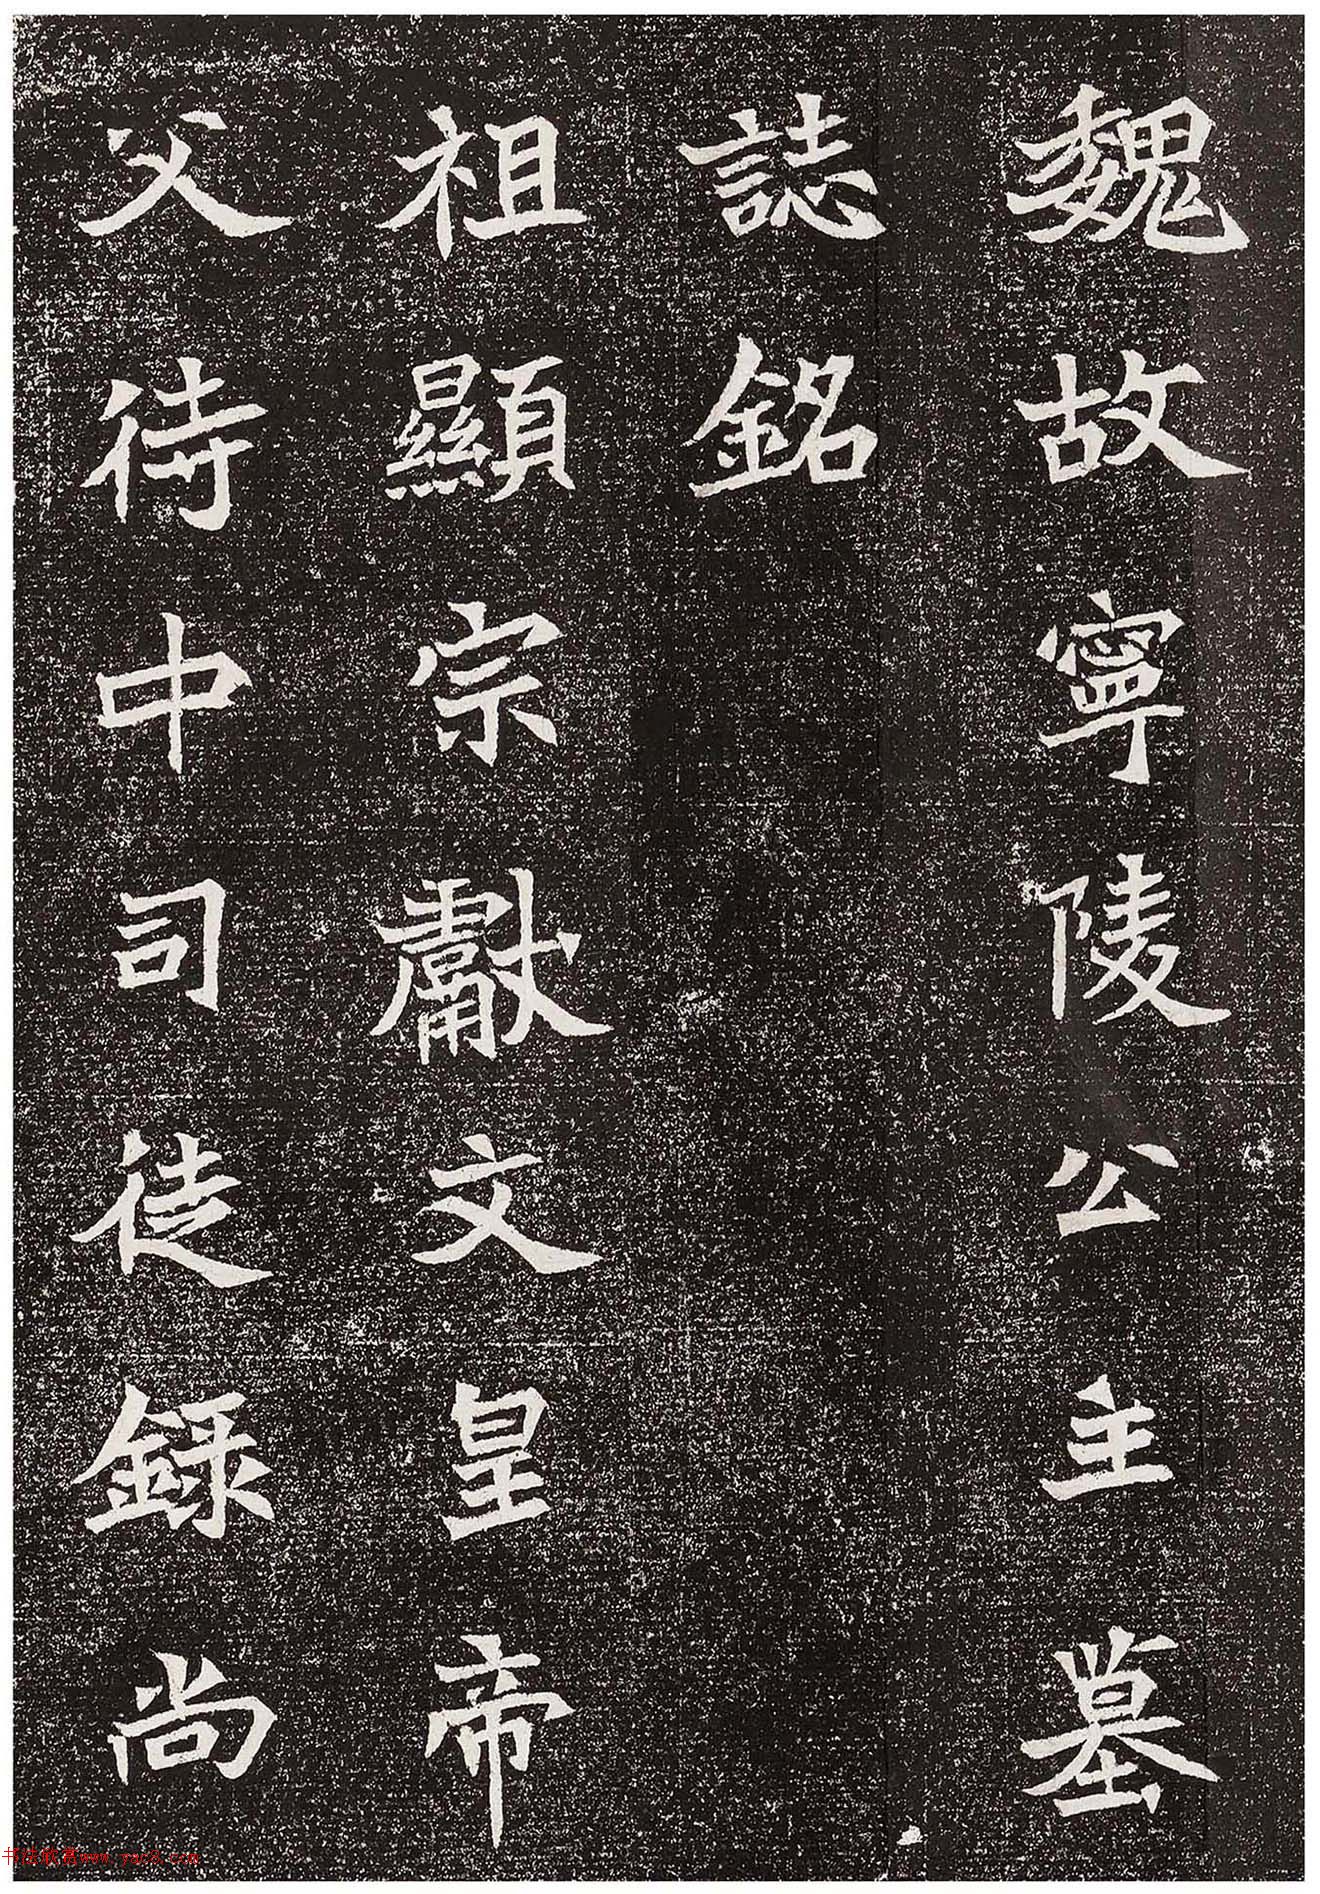 魏故寧陵公主墓
誌銘
祖顯宗獻文皇帝
父侍中司徒錄尚
书法欣赏www.yac8.com